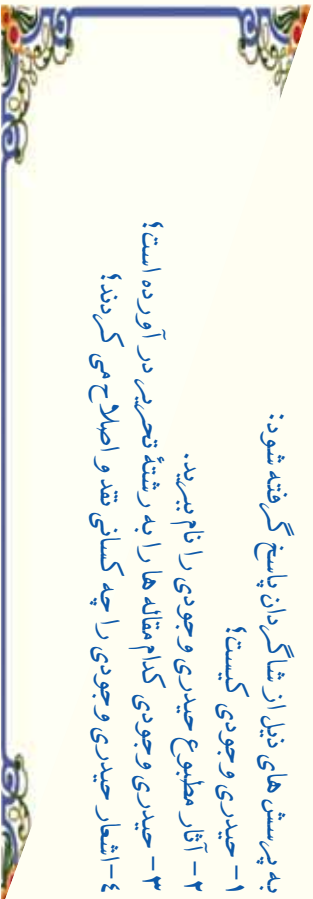 به پرسش های ذیل از شاگردان پاسخ گرفته شود:
۱- حیدری وجودی کیست؟
۲- آثار مطبوع حیدری وجودی را نام ببرید.
۳- حیدری وجودی کدام مقاله ها را به رشتهٔ تحریر در آورده است؟
٤-اشعار حیدری وجودی را چه کسانی نقد و اصلاح می کردند؟